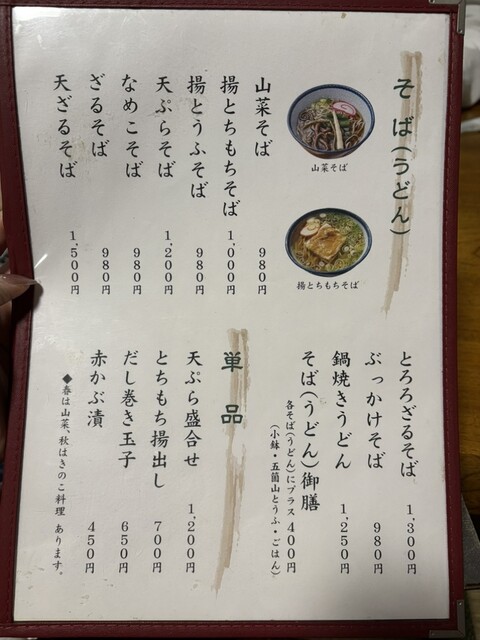 そば(うどん)
山菜そば
揚とちもちそば
山菜そば 980円
揚とちもちそば 1,000円
揚とうふそば 980円
天ぷらそば 1,200円
なめこそば 980円
ざるそば 980円
天ざるそば 1,500円
とろろざるそば 1,300円
ぶっかけそば 980円
鍋焼きうどん 1,250円
そば(うどん)御膳
各そば(うどん)にプラス400円
(小鉢・五箇山とうふ・ごはん)
単品
天ぷら盛合せ 1,200円
とちもち揚出し 700円
だし巻き玉子 650円
赤かぶ漬 450円
◆春は山菜、秋はきのこ料理 あります。